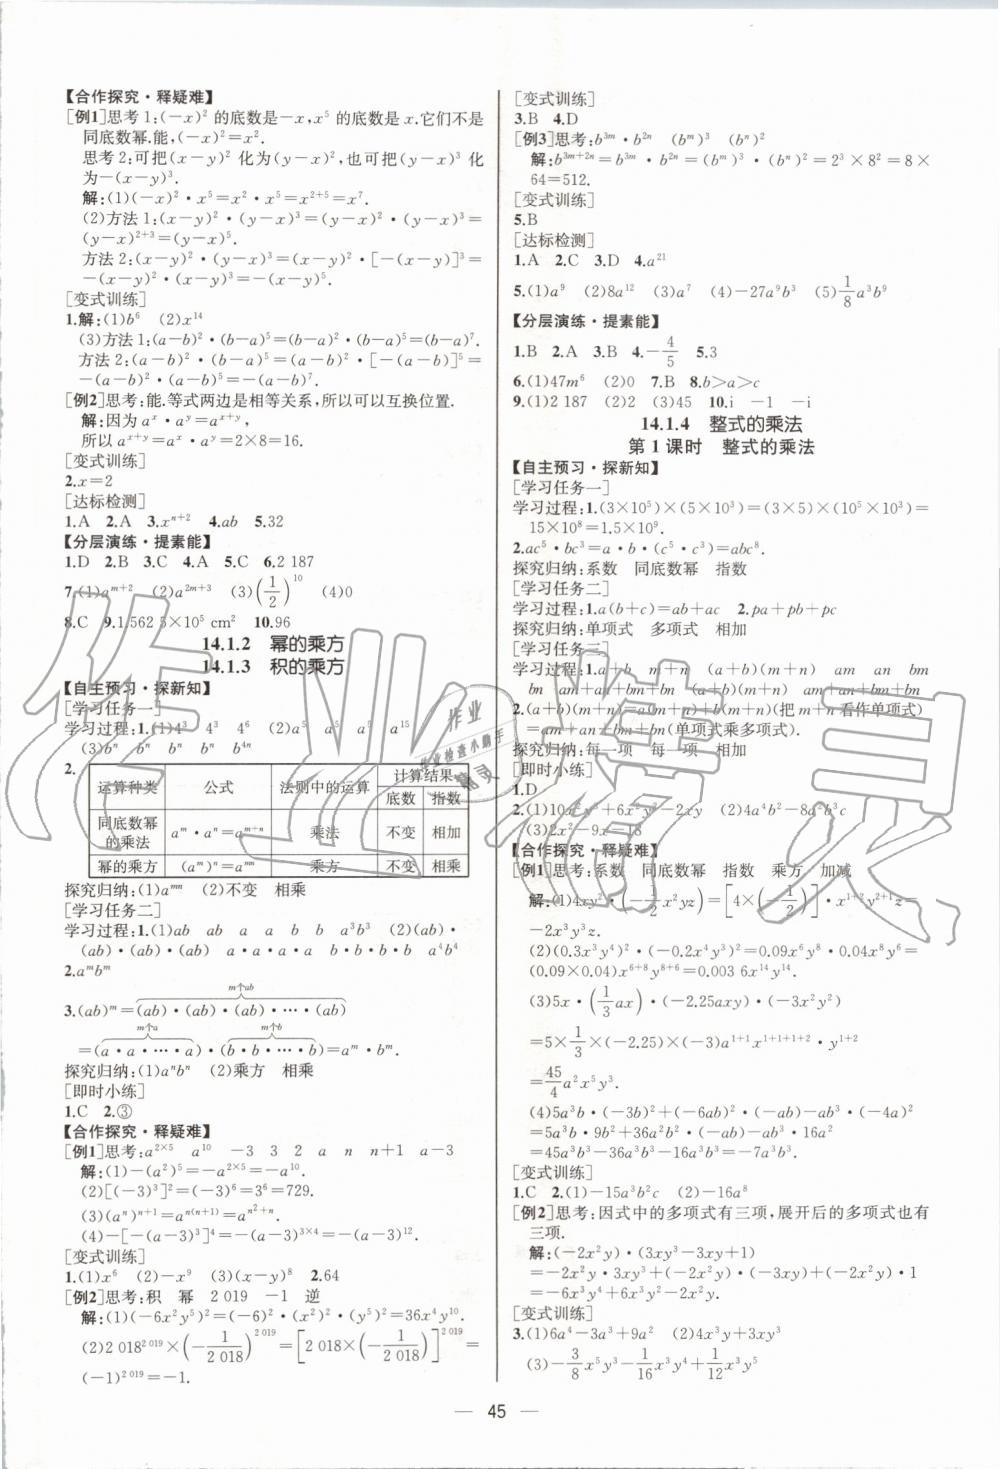 【合作探究·释疑难】
[例1]思考1:(-x)² 的底数是-x,x⁵ 的底数是 x.它们不是
同底数幂.能,(-x)²=x².
思考2:可把(x-y)² 化为(y-x)²,也可把(y-x)³ 化
为-(x-y)³.
解:(1)(-x)²·x⁵=x²·x⁵=x²⁺⁵=x⁷.
(2)方法1:(x-y)²·(y-x)³=(y-x)²·(y-x)³=
(y-x)²⁺³=(y-x)⁵.
方法2:(x-y)²·(y-x)³=(x-y)²·[-(x-y)]³=
-(x-y)²·(x-y)³=-(x-y)⁵.
[变式训练]
1.解:(1)b⁶ (2)x¹⁴
(3)方法1:(a-b)²·(b-a)⁵=(b-a)²·(b-a)⁵=(b-a)⁷.
方法2:(a-b)²·(b-a)⁵=(a-b)²·[-(a-b)]⁵=
-(a-b)²·(a-b)⁵=-(a-b)⁷.
[例2]思考:能.等式两边是相等关系,所以可以互换位置.
解:因为 aˣ·aʸ=aˣ⁺ʸ,
所以 aˣ⁺ʸ=aˣ·aʸ=2×8=16.
[变式训练]
2.x=2
[达标检测]
1.A 2.A 3.xⁿ⁺² 4.ab 5.32
【分层演练·提素能】
1.D 2.B 3.C 4.A 5.C 6.2 187
7.(1)aᵐ⁺² (2)a²ᵐ⁺³ (3)(1/2)¹⁰ (4)0
8.C 9.1.562 5×10⁵ cm² 10.96
14.1.2 幂的乘方
14.1.3 积的乘方
【自主预习·探新知】
[学习任务一]
学习过程:1.(1)4³ 4³ 4⁶ (2)a⁵ a⁵ a⁵ a¹⁵
(3)bⁿ bⁿ bⁿ bⁿ b⁴ⁿ
2.
运算种类 公式 法则中的运算 计算结果
底数 指数
同底数幂的乘法 aᵐ·aⁿ=aᵐ⁺ⁿ 乘法 不变 相加
幂的乘方 (aᵐ)ⁿ=aᵐⁿ 乘方 不变 相乘
探究归纳:(1)aᵐⁿ (2)不变 相乘
[学习任务二]
学习过程:1.(1)ab ab a a b b a³b³ (2)(ab)·
(ab)·(ab)·(ab) a·a·a·a b·b·b·b a⁴b⁴
2.aᵐbᵐ
m个ab
3.(ab)ᵐ=(ab)·(ab)·(ab)·…·(ab)
m个a m个b
=(a·a·…·a)·(b·b·…·b)=aᵐ·bᵐ.
探究归纳:(1)aⁿbⁿ (2)乘方 相乘
[即时小练]
1.C 2.③
【合作探究·释疑难】
[例1]思考:a²ˣ⁵ a¹⁰ -3 3 2 a n n+1 a-3
解:(1)-(a²)⁵=-a²ˣ⁵=-a¹⁰.
(2)[(-3)³]²=(-3)⁶=3⁶=729.
(3)(aⁿ)ⁿ⁺¹=aⁿ⁽ⁿ⁺¹⁾=a^(n²+n).
(4)-[-(a-3)³]⁴=-(a-3)³ˣ⁴=-(a-3)¹².
[变式训练]
1.(1)x⁶ (2)-x⁹ (3)(x-y)⁸ 2.64
[例2]思考:积 幂 2 019 -1 逆
解:(1)(-6x²y⁵)²=(-6)²·(x²)²·(y⁵)²=36x⁴y¹⁰.
(2)2 018²⁰¹⁹×(-1/2 018)²⁰¹⁹=[2 018×(-1/2 018)]²⁰¹⁹=
(-1)²⁰¹⁹=-1.
[变式训练]
3.B 4.D
[例3]思考:b³ᵐ·b²ⁿ (bᵐ)³ (bⁿ)²
解:b³ᵐ⁺²ⁿ=b³ᵐ·b²ⁿ=(bᵐ)³·(bⁿ)²=2³×8²=8×
64=512.
[变式训练]
5.B
[达标检测]
1.A 2.C 3.D 4.a²¹
5.(1)a⁹ (2)8a¹² (3)a⁷ (4)-27a⁹b³ (5)1/8a³b⁹
【分层演练·提素能】
1.B 2.A 3.B 4.-4/5 5.3
6.(1)47m⁶ (2)0 7.B 8.b>a>c
9.(1)2 187 (2)2 (3)45 10.i -1 -i
14.1.4 整式的乘法
第1课时 整式的乘法
【自主预习·探新知】
[学习任务一]
学习过程:1.(3×10⁵)×(5×10³)=(3×5)×(10⁵×10³)=
15×10⁸=1.5×10⁹.
2.ac⁵·bc³=a·b·(c⁵·c³)=abc⁸.
探究归纳:系数 同底数幂 指数
[学习任务二]
学习过程:1.a(b+c)=ab+ac 2.pa+pb+pc
探究归纳:单项式 多项式 相加
[学习任务三]
学习过程:1.a+b m+n (a+b)(m+n) am an bm
bn am+an+bm+bn am+an+bm+bn
2.(a+b)(m+n)=a(m+n)+b(m+n)(把 m+n 看作单项式)
=am+an+bm+bn(单项式乘多项式).
探究归纳:每一项 每一项 相加
[即时小练]
1.D
2.(1)10x²y³+6x²y²-2xy (2)4a⁴b²-8a²b³c
(3)2x²-9x-18
【合作探究·释疑难】
[例1]思考:系数 同底数幂 指数 乘方 加减
解:(1)4xy²·(-1/2x²yz)=[4×(-1/2)]·x¹⁺²y²⁺¹z=
-2x³y³z.
(2)(0.3x³y⁴)²·(-0.2x⁴y³)²=0.09x⁶y⁸·0.04x⁸y⁶=
(0.09×0.04)x⁶⁺⁸y⁸⁺⁶=0.003 6x¹⁴y¹⁴.
(3)5x·(1/3ax)·(-2.25axy)·(-3x²y²)
=5×1/3×(-2.25)×(-3)a¹⁺¹x¹⁺¹⁺¹⁺²·y¹⁺²
=45/4a²x⁵y³.
(4)5a³b·(-3b)²+(-6ab)²·(-ab)-ab³·(-4a)²
=5a³b·9b²+36a²b²·(-ab)-ab³·16a²
=45a³b³-36a³b³-16a³b³=-7a³b³.
[变式训练]
1.C 2.(1)-15a³b²c (2)-16a⁸
[例2]思考:因式中的多项式有三项,展开后的多项式也有
三项.
解:(-2x²y)·(3xy³-3xy+1)
=-2x²y·3xy³+(-2x²y)·(-3xy)+(-2x²y)·1
=-6x³y⁴+6x³y²-2x²y.
[变式训练]
3.(1)6a⁴-3a³+9a² (2)4x³y+3xy³
(3)-3/8x⁵y³-1/16x³y⁴+1/12x³y⁵
— 45 —